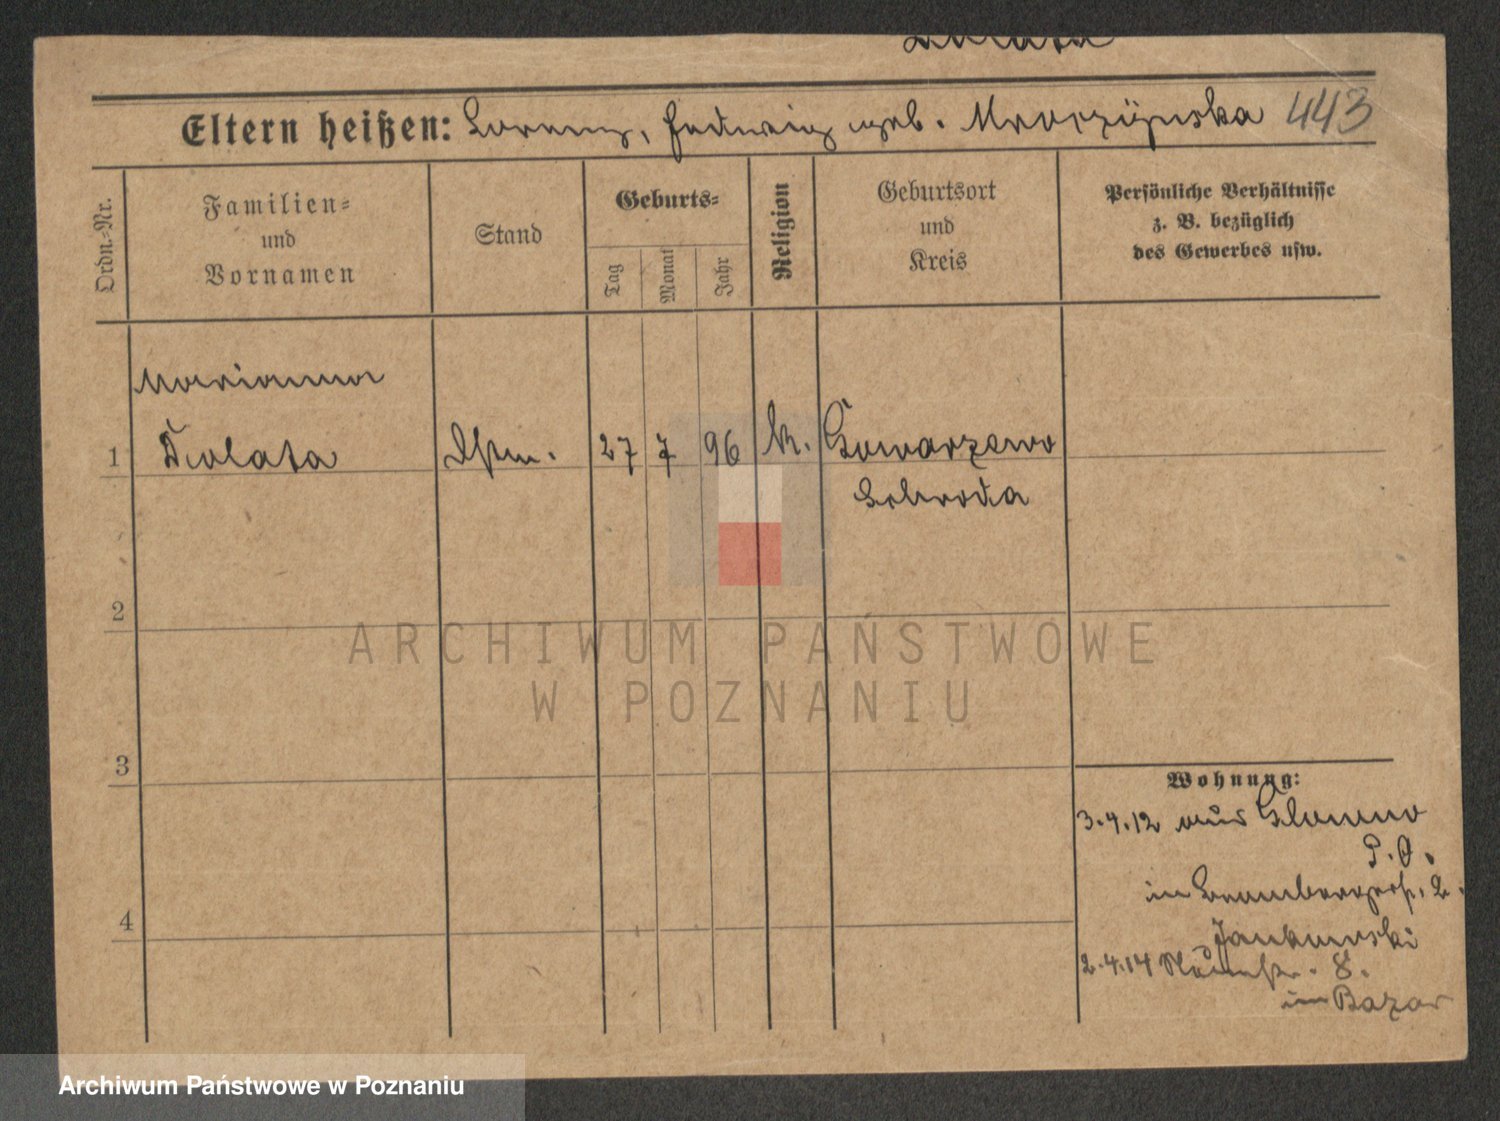 Eltern heißen: Lorenz, Hedwig geb. Mroczyńska 443
Ordn.-Nr.
Familien-
und
Vornamen
Stand
Geburts-
Tag
Monat
Jahr
Religion
Geburtsort
und
Kreis
Persönliche Verhältnisse
z. B. bezüglich
des Gewerbes usw.
Marianna
1 Dulata Dstm. 27 7 96 k. Gowarzewo
Schroda
2
3
4
ARCHIWUM PAŃSTWOWE
W POZNANIU
Wohnung:
3.4.12 aus Glowno
P. O.
in Brombergerstr. 2.
Jankowski
2.4.14 Neuestr. 8.
im Bazar
Archiwum Państwowe w Poznaniu